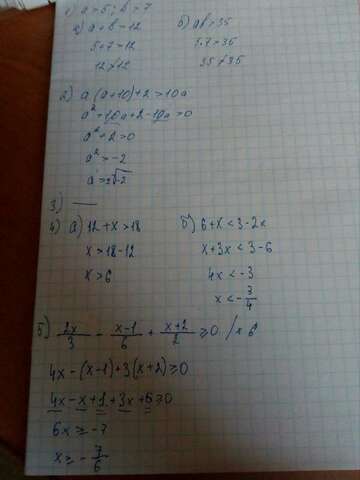 1) a > 5; b > 7
а) a + b > 12 б) ab > 35
5+7=12 5·7=35
12>12 35>35
2) a(a+10)+2>10a
a²+10a+2-10a>0
a²+2>0
a²>-2
a>±√-2
3) —
4) а) 12+x>18 б) 6+x<3-2x
x>18-12 x+3x<3-6
x>6 4x<-3
x<-3/4
5) 2x/3 - x-1/6 + x+2/2 ≥0 /×6
4x-(x-1)+3(x+2)≥0
4x-x+1+3x+6≥0
6x≥-7
x≥-7/6